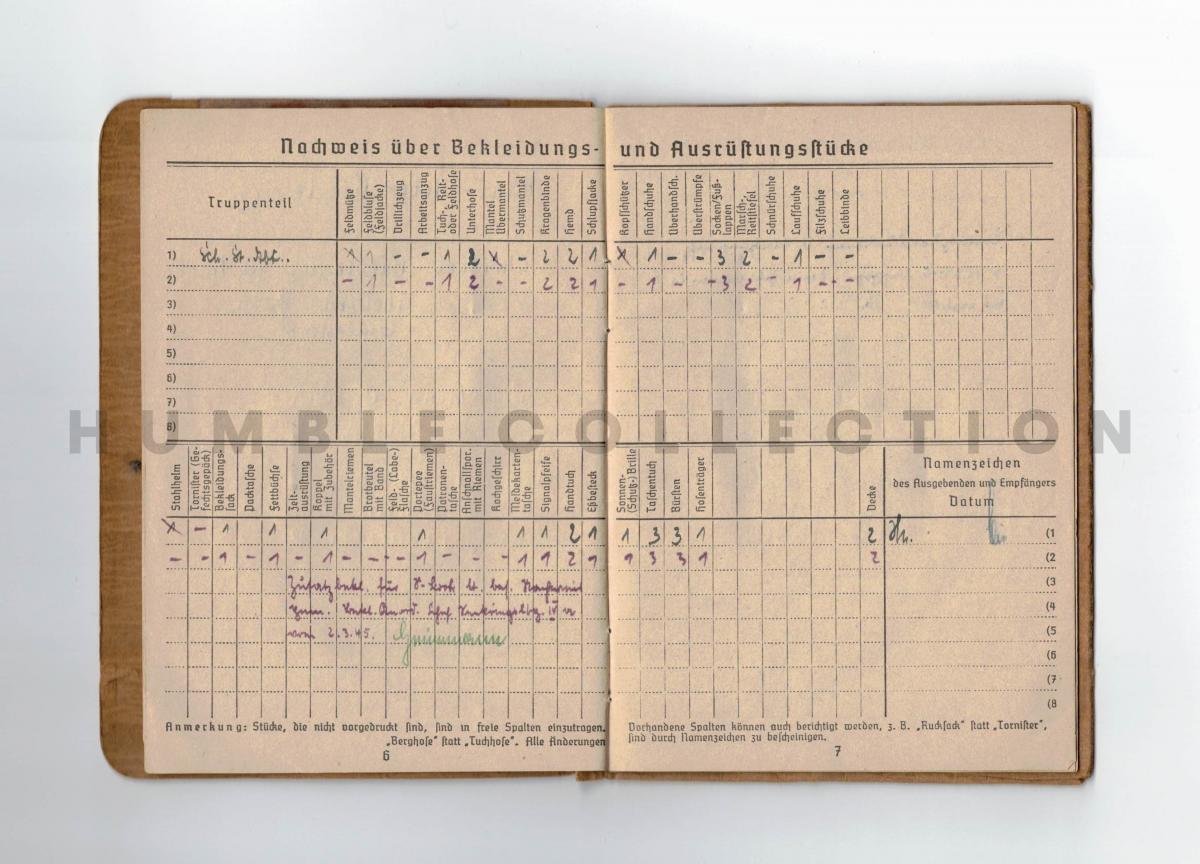 Nachweis über Bekleidungs- und Ausrüstungsstücke
Truppenteil
Feldmütze
Feldbluse (Feldjacke)
Drillichzeug
Arbeitsanzug
Tuch-, Reit- oder Feldhose
Unterhose
Mantel Übermantel
Schutzmantel
Kragenbinde
Hemd
Schlupfjacke
Kopfschützer
Handschuhe
Überhandsch.
Überstrümpfe
Socken/Fuß-lappen
Marsch-, Reitstiefel
Schnürschuhe
Laufschuhe
Filzschuhe
Leibbinde
1) Sch. St. X 1 - - 1 2 X - 2 2 1 X 1 - - 3 2 - 1 - -
2) - 1 - - 1 2 - - 2 2 1 - 1 - - 3 2 - 1 - -
3)
4)
5)
6)
7)
8)
HUMBLE COLLECTION
Stahlhelm
Tornister (Ge-fechtsgepäck)
Bekleidungs-sack
Packtasche
Fettbüchse
Zelt-ausrüstung
Koppel mit Zubehör
Mantelriemen
Brotbeutel mit Band
Feld- (Labe-) Flasche
Portepee (Faustriemen)
Patronen-tasche
Anschnallspor. mit Riemen
Kochgeschirr
Meldekarten-tasche
Signalpfeife
Handtuch
Eßbesteck
Sonnen- (Schutz-) Brille
Taschentuch
Bürsten
Hosenträger
Decke
Namenzeichen
des Ausgebenden und Empfängers
Datum
X - 1 1 1 1 1 1 2 1 1 3 3 1 2 (1
- - 1 - 1 - 1 - - - 1 - - - 1 1 2 1 1 3 3 1 2 (2
Zusatzbekl. für (3
(4
vom 2.3.45. (5
(6
(7
(8
Anmerkung: Stücke, die nicht vorgedruckt sind, sind in freie Spalten einzutragen.
„Berghose“ statt „Tuchhose“. Alle Änderungen
6
Vorhandene Spalten können auch berichtigt werden, z. B. „Rucksack“ statt „Tornister“,
sind durch Namenzeichen zu bescheinigen.
7